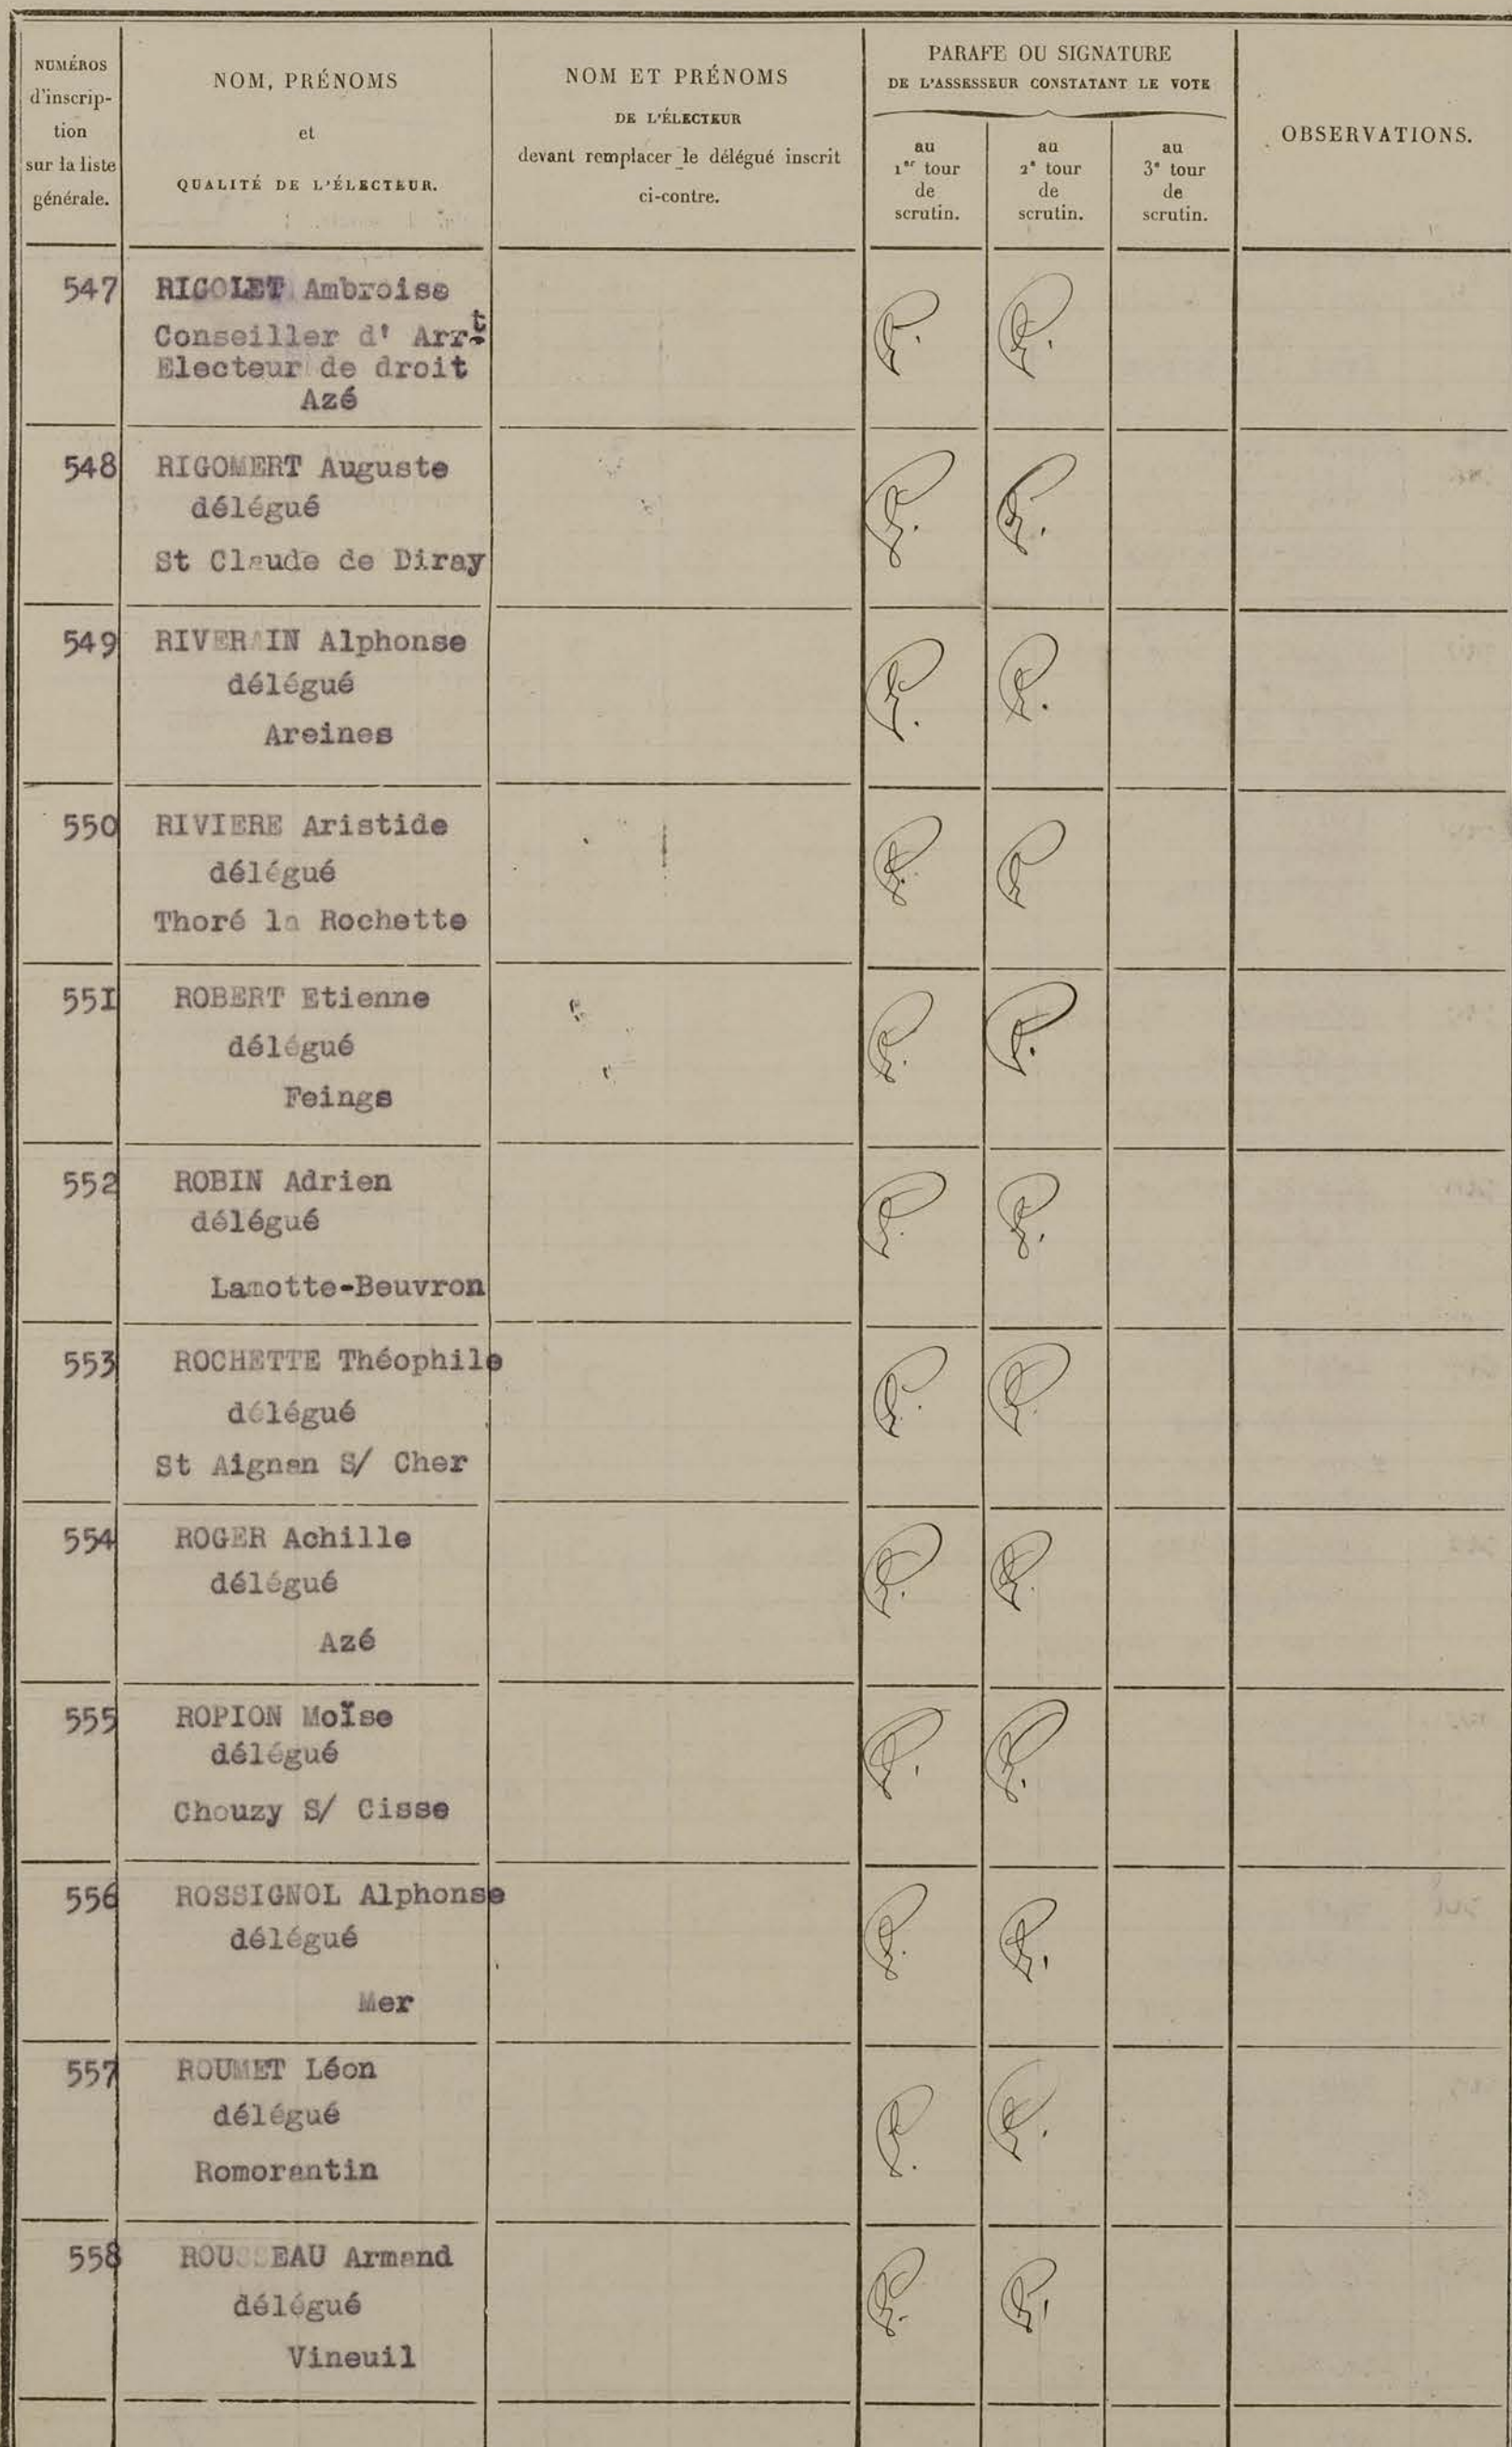 NUMÉROS
d'inscrip-
tion
sur la liste
générale.
NOM, PRÉNOMS
et
QUALITÉ DE L'ÉLECTEUR.
NOM ET PRÉNOMS
DE L'ÉLECTEUR
devant remplacer le délégué inscrit
ci-contre.
PARAFE OU SIGNATURE
DE L'ASSESSEUR CONSTATANT LE VOTE
au
1er tour
de
scrutin.
au
2e tour
de
scrutin.
au
3e tour
de
scrutin.
OBSERVATIONS.
547 RIGOLET Ambroise
Conseiller d' Arrt
Electeur de droit
Azé
548 RIGOMERT Auguste
délégué
St Claude de Diray
549 RIVERAIN Alphonse
délégué
Areines
550 RIVIERE Aristide
délégué
Thoré la Rochette
551 ROBERT Etienne
délégué
Feings
552 ROBIN Adrien
délégué
Lamotte-Beuvron
553 ROCHETTE Théophile
délégué
St Aignan S/ Cher
554 ROGER Achille
délégué
Azé
555 ROPION Moïse
délégué
Chouzy S/ Cisse
556 ROSSIGNOL Alphonse
délégué
Mer
557 ROUMET Léon
délégué
Romorantin
558 ROUSSEAU Armand
délégué
Vineuil